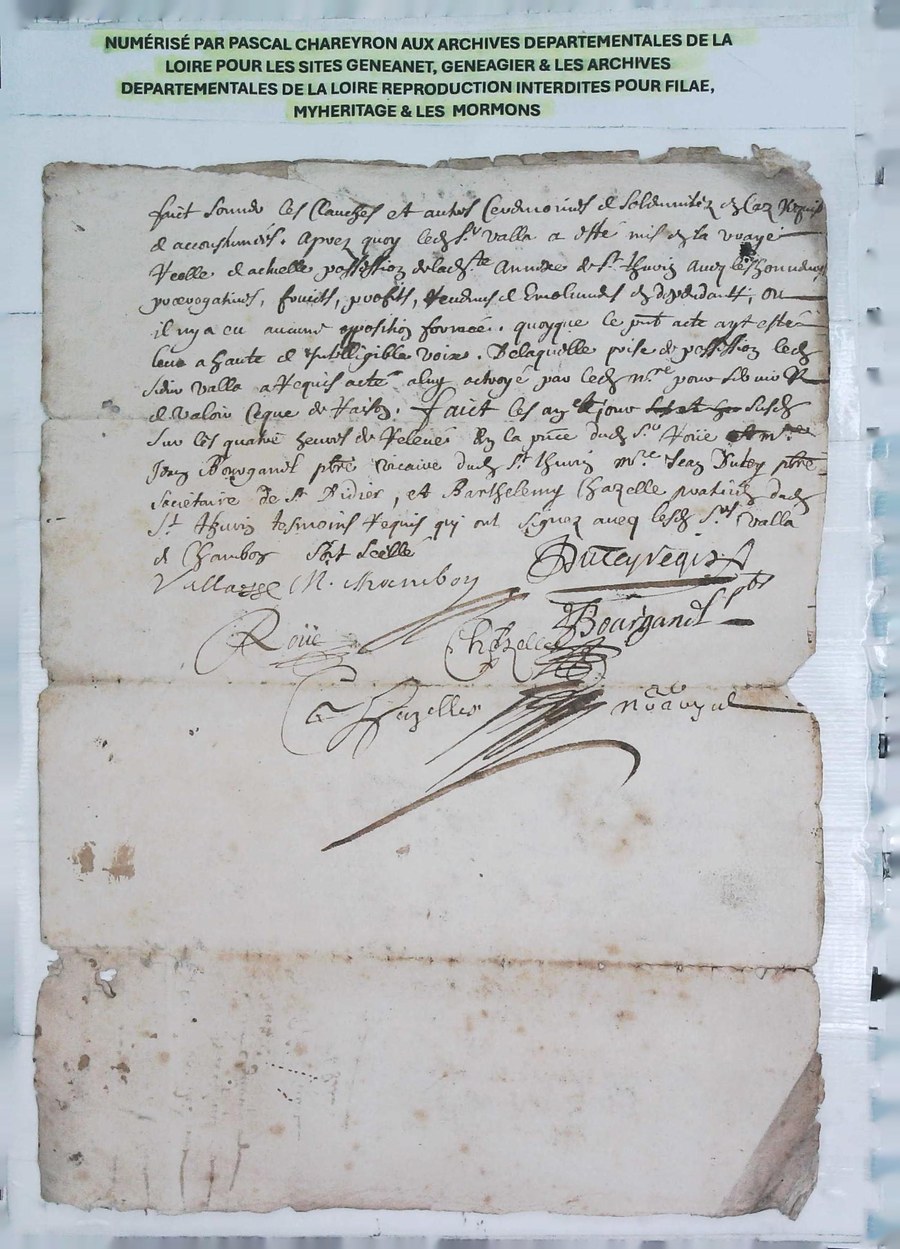 NUMÉRISÉ PAR PASCAL CHAREYRON AUX ARCHIVES DEPARTEMENTALES DE LA
LOIRE POUR LES SITES GENEANET, GENEAGIER & LES ARCHIVES
DEPARTEMENTALES DE LA LOIRE REPRODUCTION INTERDITES POUR FILAE,
MYHERITAGE & LES MORMONS
faict sonner les Cloches et autres Ceremonies et solemnitez en cas requis
et accoustumés. apres quoy led. Sr. valla a esté mis en la vraye
reelle et actuelle possession de lad. annexe de St. thurin avec les honneurs
prerogatives, fruits, profits, revenus et Emoluments en dependants, ou
il ny a eu aucune opposition formée. quoyque le pnt acte ayt esté
leu a haute et Intelligible voix. De laquelle prise de possession led.
sieur valla a requis acte a luy octroyé par led. pour servir
et valoir Ceque de raison. faict les an et jour susd.
sur les quatre heures de relevée En la pnce dud. Sr. Roüe
Bourganel pbre vicaire dud. St. thurin mre. Jean Dutey pbre
societaire de St. Didier, et Barthelemy Chazelle dud.
St. thurin tesmoins requis qui ont signez avecq lesd. Srs. valla
et Chambon
Valla N. chambon
Duteyregis
Roüe
Bourganel pbre
Chazelle
Chazelles